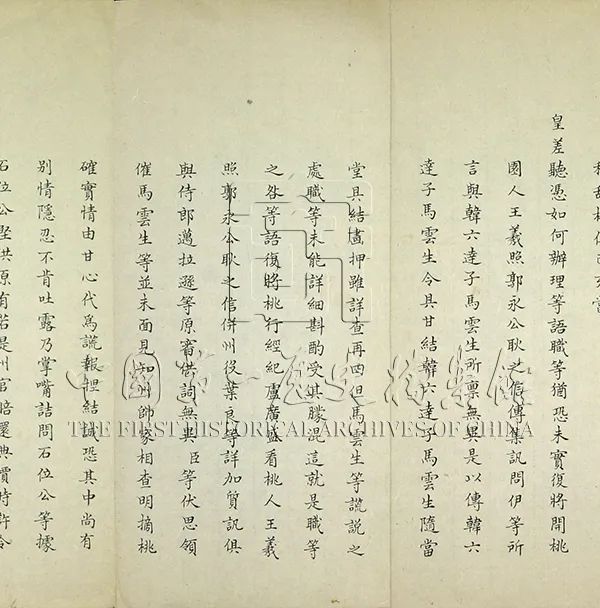 皇差聽憑如何辦理等語職等猶恐未實復將開桃
園人王義照郭永公耿之信傳集訊問伊等所
言與韓六達子馬雲生所禀無異是以傳韓六
達子馬雲生令具甘結韓六達子馬雲生隨當
堂具結畫押雖詳查再四但馬雲生等謊説之
處職等未能詳細斟酌受其朦混這就是職等
之咎等語復將桃行經紀盧廣盛看桃人王義
照郭永公耿之信併州役葉良等詳加質訊俱
與侍郎邁拉遜等原審供詞無異臣等伏思領
催馬雲生等並未面見知州帥家相查明摘桃
確實情由甘心代為謊報捏結誠恐其中尚有
别情隱忍不肯吐露乃掌嘴詰問石位公等據
石位公堅供原有若是州官賠還典價時許令
中国第一历史档案馆
THE FIRST HISTORICAL ARCHIVES OF CHINA